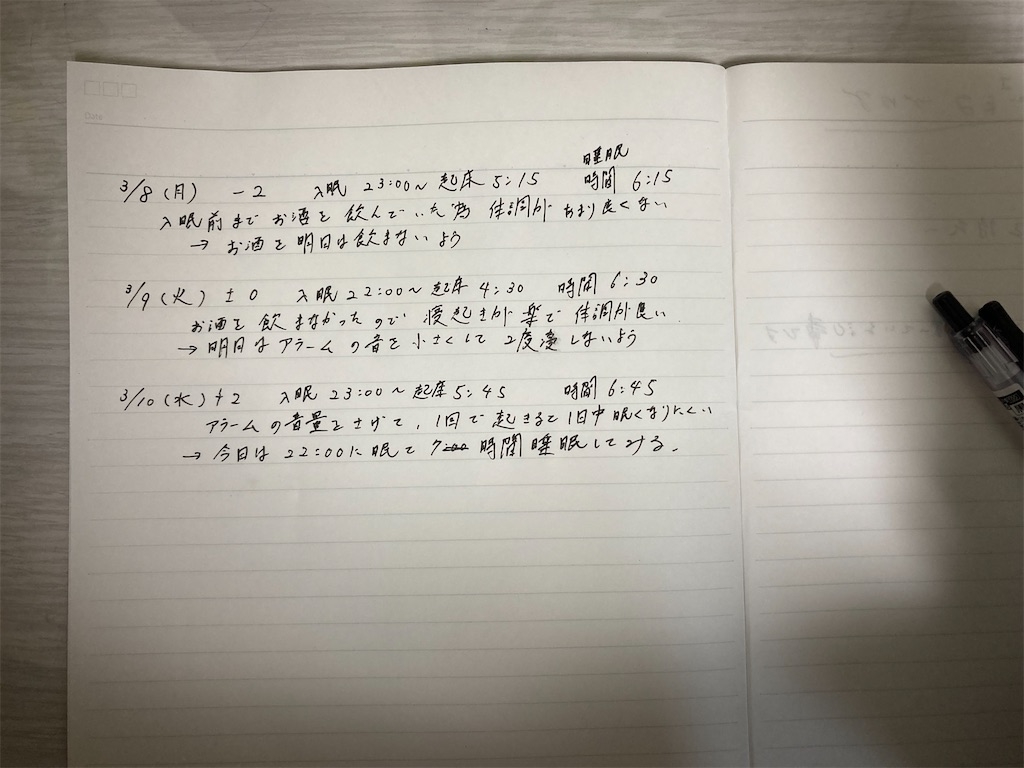 Date
睡眠
3/8(月) -2 入眠 23:00〜起床 5:15 時間 6:15
入眠前までお酒を飲んでいた為 体調があまり良くない
→ お酒を明日は飲まないよう
3/9(火) ±0 入眠 22:00〜起床 4:30 時間 6:30
お酒を飲まなかったので 寝起きが楽で体調が良い
→明日はアラームの音を小さくして2度寝しないよう
3/10(水)+2 入眠 23:00〜起床5:45 時間 6:45
アラームの音量をさげて、1回で起きると1日中眠くなりにくい
→ 今日は 22:00に眠て 7 時間睡眠してみる.